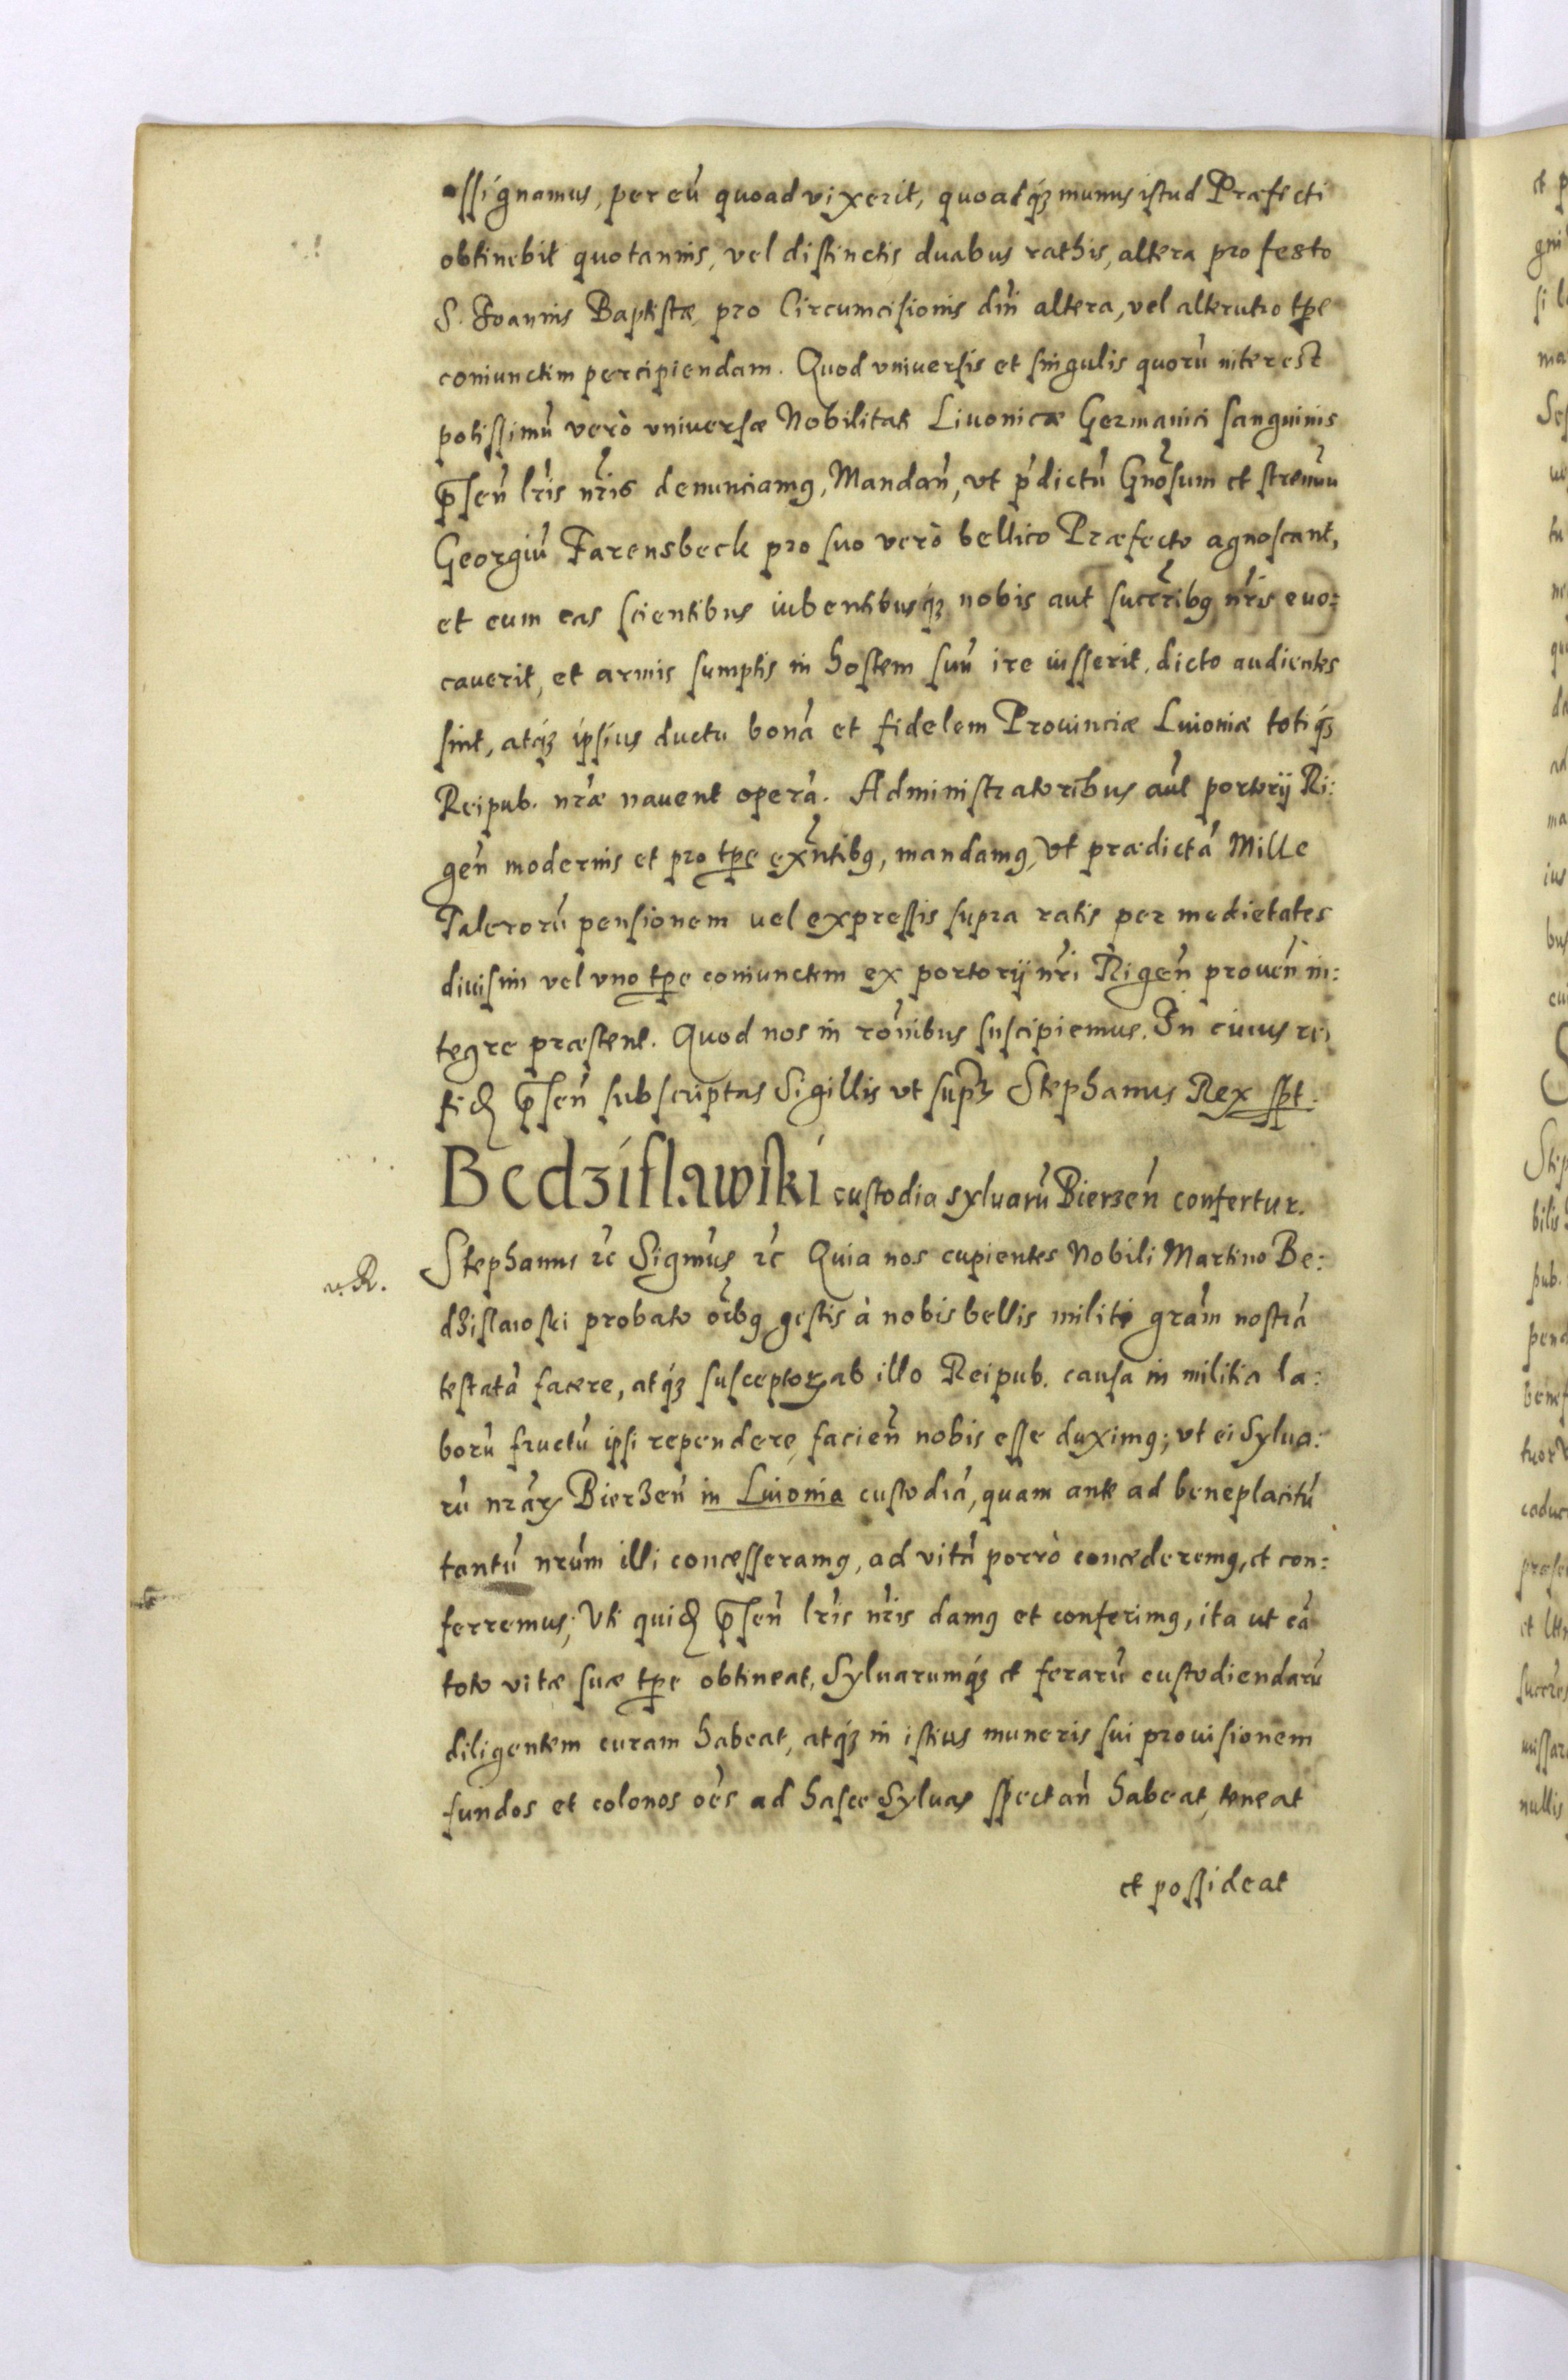 assignamus, per eū quoad vixerit, quoadq́ꝫ munus istud Præfecti
obtinebit quotannis, vel distinctis duabus rathis, altera pro festo
S. Joannis Baptistæ, pro Circumcisionis dn̄i altera, vel alterutro tp̄e
coniunctim percipiendam. Quod vniuersis et singulis quorū interest
potissimū verò vniuersæ Nobilitati Liuonicæ Germanici sanguinis
p̄sen̄ lr̄is nr̄is denunciamꝰ, Mandan̄, vt p̄dictū Gn̄osum et strenuū
Georgiū Farensbeck pro suo vero bellico Præfecto agnoscant,
et cum eas scientibus iubentibusq́ꝫ nobis aut succr̄ibꝰ nr̄is euo:
cauerit, et armis sumptis in hostem suū ire iusserit, dicto audientes
sint, atq́ꝫ ipsius ductu bonā et fidelem Prouinciæ Liuoniæ totiq́ꝫ
Reipub. nr̄æ nauent operā. Administratoribus aūt portorij Ri:
gen̄ modernis et pro tp̄e exn̄tibꝰ, mandamꝰ, vt prædictā Mille
Talerorū pensionem uel expressis supra ratis per medietates
diuisim vel vno tp̄e coniunctim ex portorij nr̄i Rigen̄ prouen̄ in:
tegre præstent. Quod nos in rōnibus suscipiemus. In cuius rei
fid̄ p̄sen̄ subscriptas Sigillis vt supꝫ Stephanus Rex sp̄t.
Bedzislawski custodia syluarū Bierzen̄ confertur.
v. R.
Stephanus ꝛc Sigm̄us ꝛc Quia nos cupientes Nobili Martino Be:
dzislawski probato oībꝰ gestis à nobis bellis militi grām nostrā
testatā facere, atq́ꝫ susceptoꝝ ab illo Reipub. causa in militia la:
borū fructū ipsi rependere, facien̄ nobis esse duximꝰ; vt ei Sylua:
rū nr̄aꝝ Bierzen̄ in Liuonia custodiā, quam ante ad beneplacitū
tantū nr̄um illi concesseramꝰ, ad vitā porrò concederemꝰ, et con:
ferremus; Vti quid̄ p̄sen̄ lr̄is nr̄is damꝰ et conferimꝰ, ita ut eā
toto vitæ suæ tp̄e obtineat, Syluarumq́ꝫ et ferarū custodiendarū
diligentem curam habeat, atq́ꝫ in istius muneris sui prouisionem
fundos et colonos oēs ad hasce Syluas spectan̄ habeat, teneat
et possideat